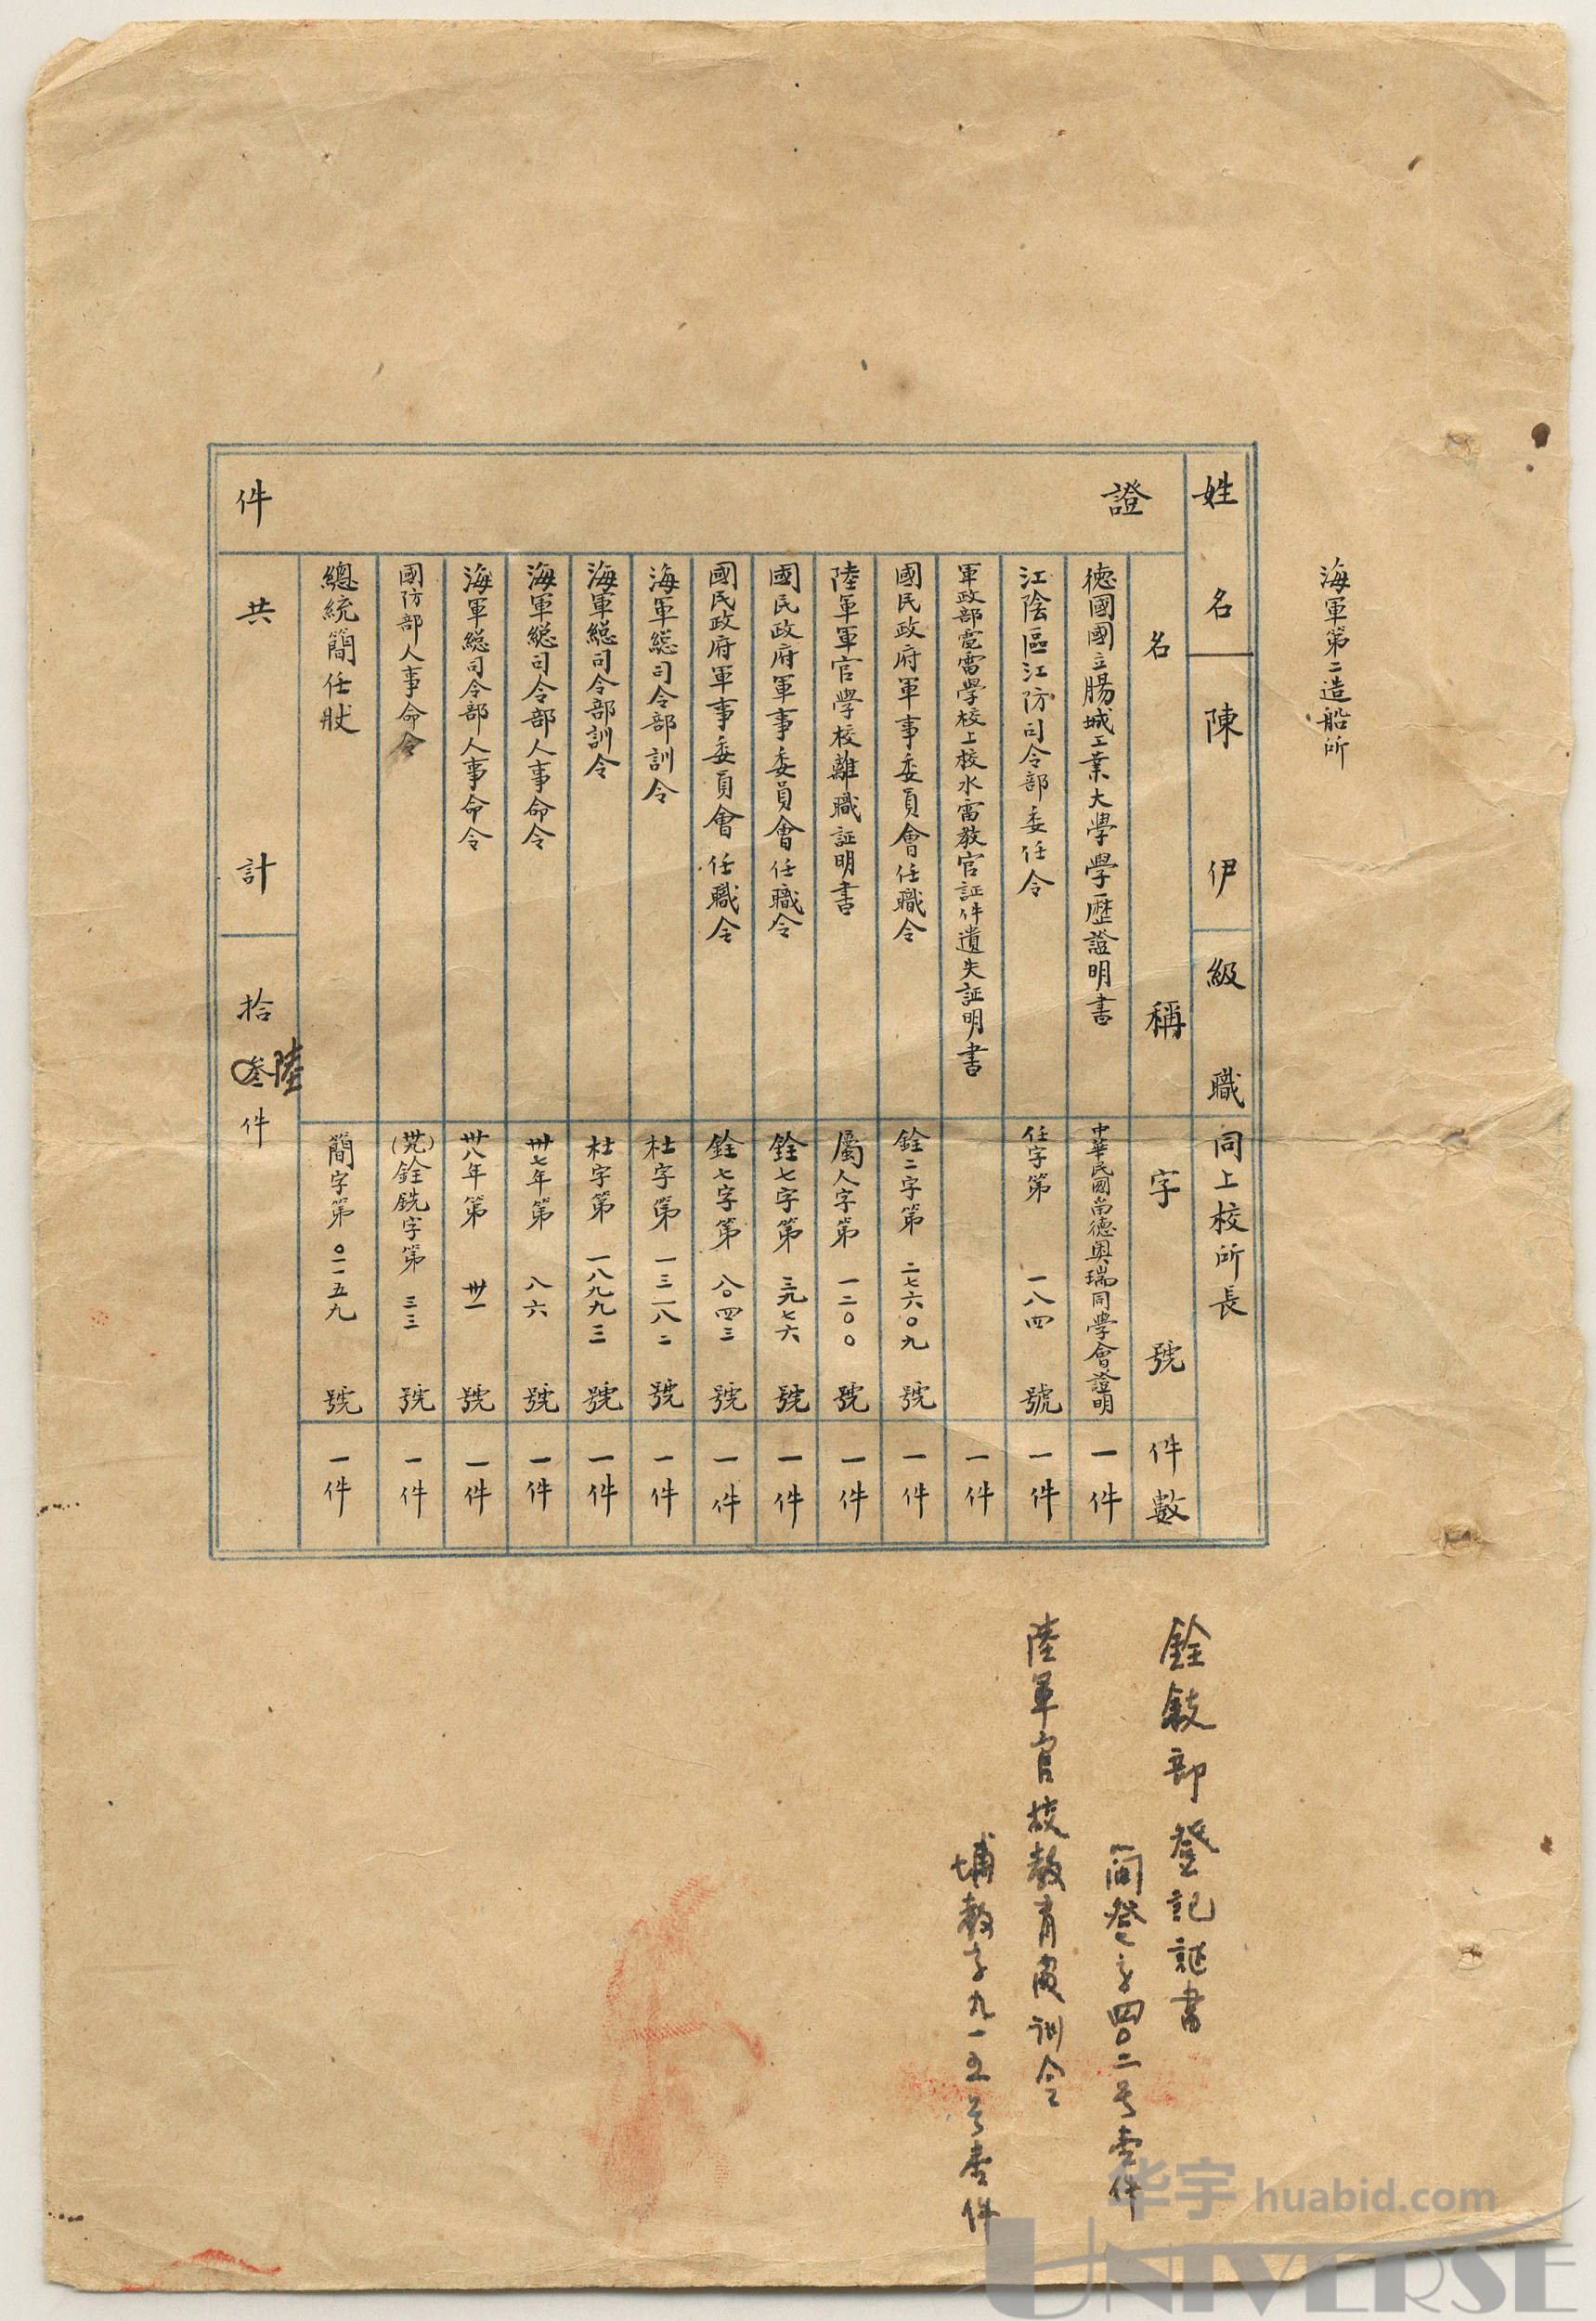 海軍第二造船所
姓名 陳伊 級職 同上校所長
證件
名稱 字號 件數
德國國立腸城工業大學學歷證明書 中華民國留德奧瑞同學會證明 一件
江陰區江防司令部委任令 任字第一八四號 一件
軍政部電雷學校上校水雷教官証件遺失証明書 一件
國民政府軍事委員會任職令 銓二字第二七六〇九號 一件
陸軍軍官學校離職証明書 屬人字第一二〇〇號 一件
國民政府軍事委員會任職令 銓七字第三九七六號 一件
國民政府軍事委員會任職令 銓七字第八〇四三號 一件
海軍総司令部訓令 杜字第一三一八二號 一件
海軍総司令部訓令 杜字第一八九九三號 一件
海軍総司令部人事命令 卅七年第八六號 一件
海軍総司令部人事命令 卅八年第卅一號 一件
國防部人事命令 銓銑字第三三號 一件
總統簡任狀 簡字第〇二一五九號 一件
共計 拾叁陸件
銓敍部登記証書
簡登字四〇二号壹件
陸軍官校教育處訓令
埔教字九一五号壹件
华宇 huabid.com
UNIVERSE